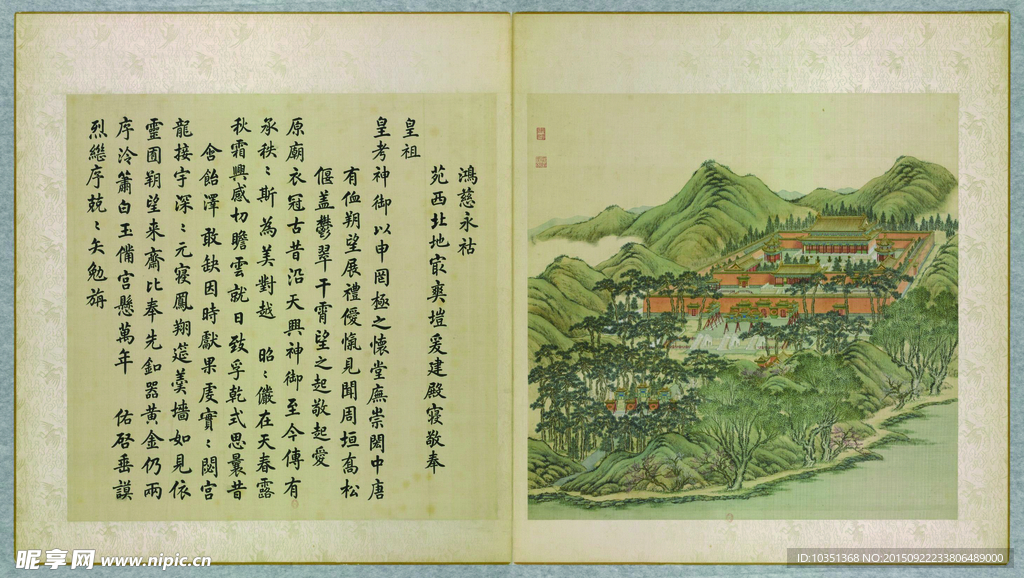 鴻慈永祜
苑西北地㝡爽塏爰建殿寢敬奉
皇祖
皇考神御以申罔極之懷堂廡崇閎中唐
有侐朔望展禮僾愾見聞周垣喬松
偃盖鬱翠干霄望之起敬起愛
原廟衣冠古昔沿天興神御至今傳有
承秩〻斯為美對越 昭〻儼在天春露
秋霜興感切瞻雲就日致孚乾式思曩昔
含飴澤敢缺因時獻果虔實〻閟宮
龍接宇深〻元寢鳳翔筵羹墻如見依
靈囿朔望來齋比奉先釦器黄金仍兩
序泠簫白玉備宮懸萬年 佑啓垂謨
烈繼序兢〻矢勉旃
昵享网 www.nipic.cn
ID:10351368 NO:20150922233806489000